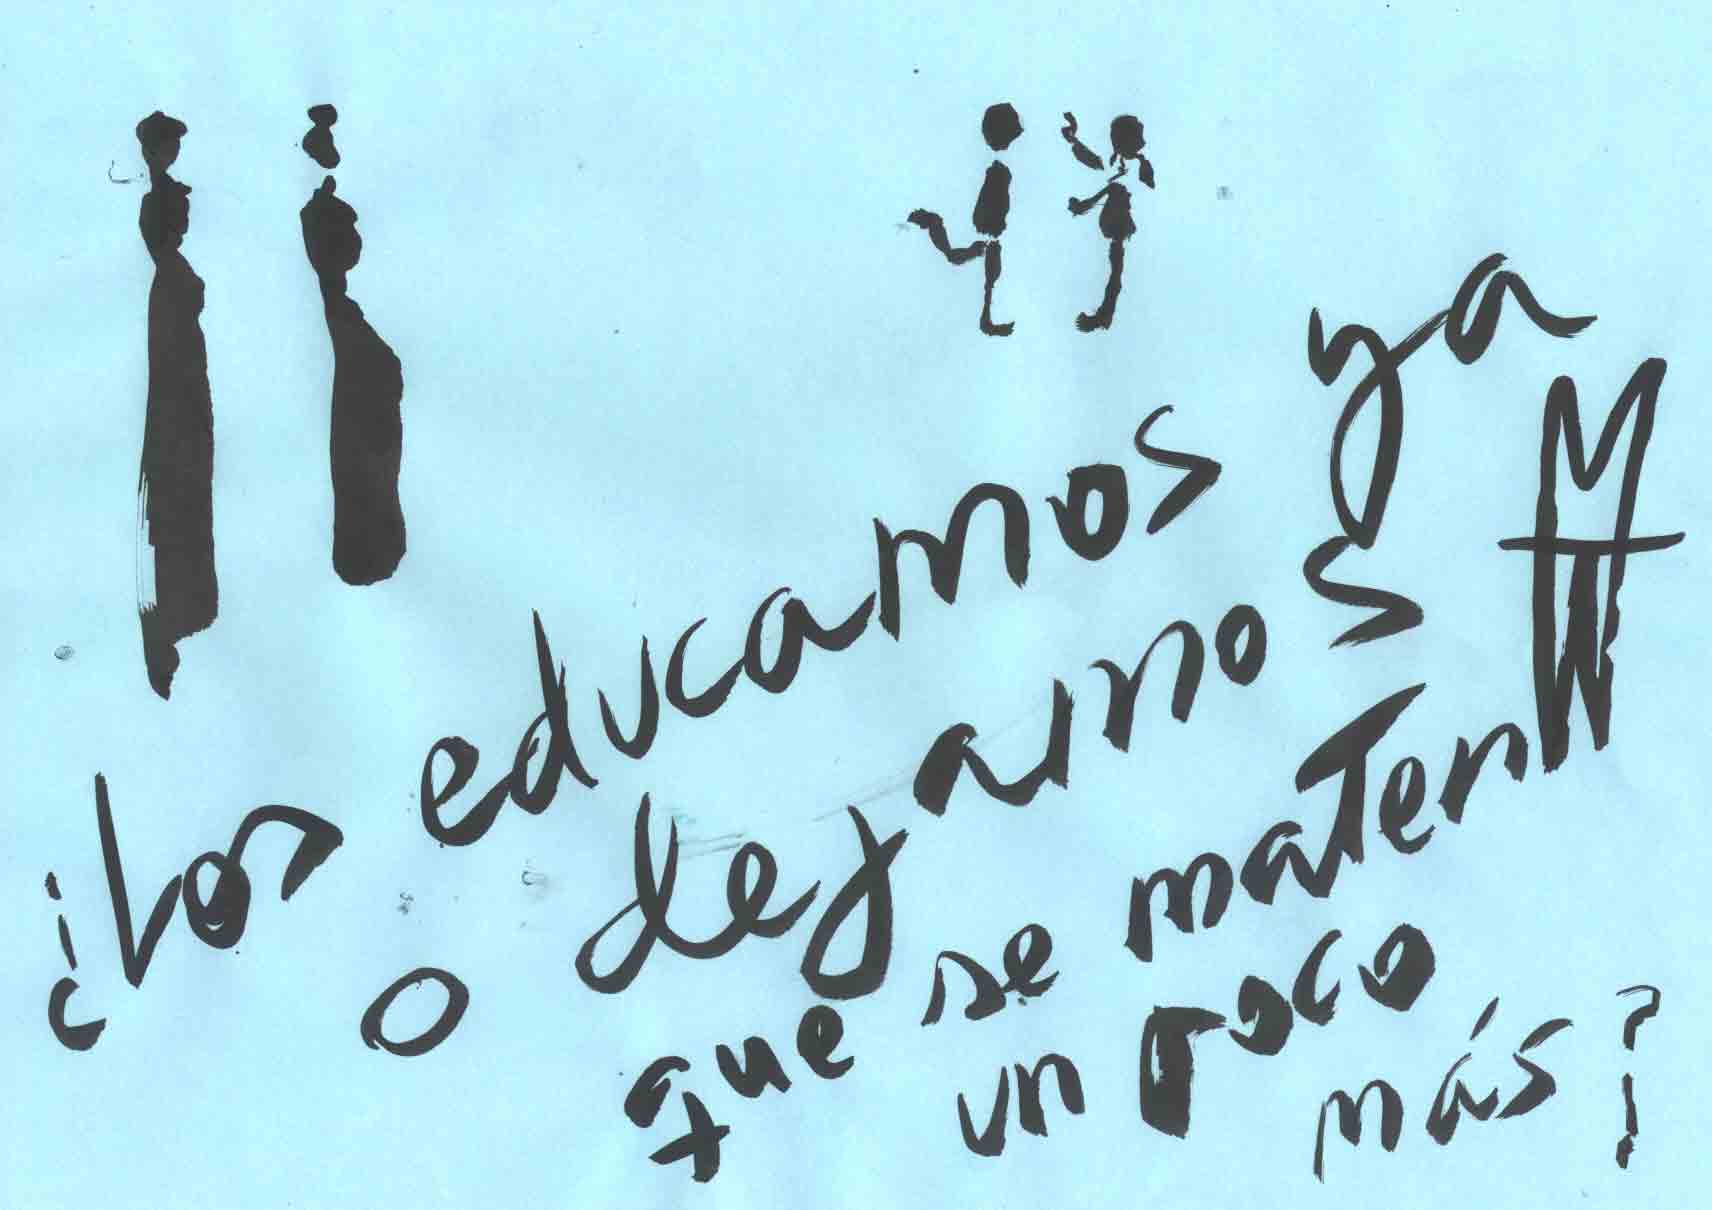 ¿Los educamos ya
o dejamos
que se maten
un poco
más?